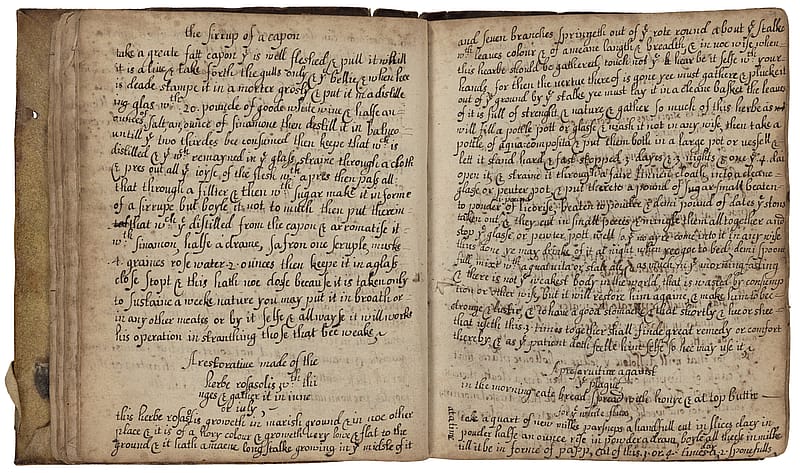 the sirrup of a capon
take a greate fatt capon yt is well fleshed & pull it whill
it is alive & take forth the gutts only & ye bellie, & when hee
is deade stampe it in a morter grosly & put it in a distille
ing glas wth 20. pounde of goode white wine & halfe an
ounces salt, an ounce of sinamone then destill it in balneo
untill ye two thirdes bee consumed then keepe that wch is
distilled & yt wch remayned in ye glase straine through a cloth
& pres out all ye joyse of the flesh wch a pres then pass all
that through a filtter & then wth sugar make it in forme
of a sirrupe but boyle it not to much then put therein
that wch ye distilled from the capon & arromatise it
wth sinamon halfe a drame, safron one scruple, muske
4. graines rose water 2 ounces then keepe it in a glass
close stopt & this hath noe dose because it is taken only
to sustaine a weeke nature you may put it in broath or
in any other meates or by it selfe & allwayse it will worke
his operation in strenthing those that bee weake
A restorative made of the
herbe rosasolis wth thi
nges & gather it in iune
or iuly
this herbe rosasolis groweth in marish ground & in noe other
place & it is of a hory colour & groweth very lowe & flat to the
ground & it hath a meane long stalke growing in ye middle of it
and seven branches springeth out of ye rote round about ye stalke
wth leaves colour & of a meane length & breadth & in noe wise when
this hearbe should be gathered, touch not ye hearbe it selfe wth your
hands, for then the vertue there of is gone yee must gather & plucke it
out of ye ground by ye stalke yee must lay it in a cleane basket the leaves
of it is full of strenght & nature & gather so much of this herbe as
will fill a pottle pott or glasse & wash it not in any wise, then take a
pottle of aqua composita & put them both in a large pot or vessell &
lett it stand hard & fast stopped 3 dayes & 3 nights & one ye 4. day
open it, & straine it through a faire linnien cloath, into a cleane
glase or peuter pot, & put thereto a pound of sugar small beaten
to ponder of licorise, beaten to pouther & demi pound of dates ye stons
taken out & they cut in small peeces & mingle them all together and
stop ye glasse or pewter pott well so yt no ayre come to it in any wise
this done ye may drinke of it at night when yee goe to bed, demi spoon
full, mixt wth aquavita or stale ale & as much in ye morning fasting
& there is not ye weakest body in the world, that is wasted by consump
tion or other wise, but it will restore him againe, & make him to bee
stronge & lustie, & to have a good stomacke & that shortly & hee or shee
that useth this 3 times together shall finde great remedy or comfort
thereby & as ye patient doth feele him selfe so hee may use it
A preservative against
ye plague
in the morning eate bread spread with honye & atop butter
for ye white flux
take a quart of new milke parsneps a handfull cut in slices clary in
pouder halfe an ounce rise in powder a dram, boyle all these in milke
till it be in forme of pap, eat of this 3 or 4 times a day 2 sponefulls